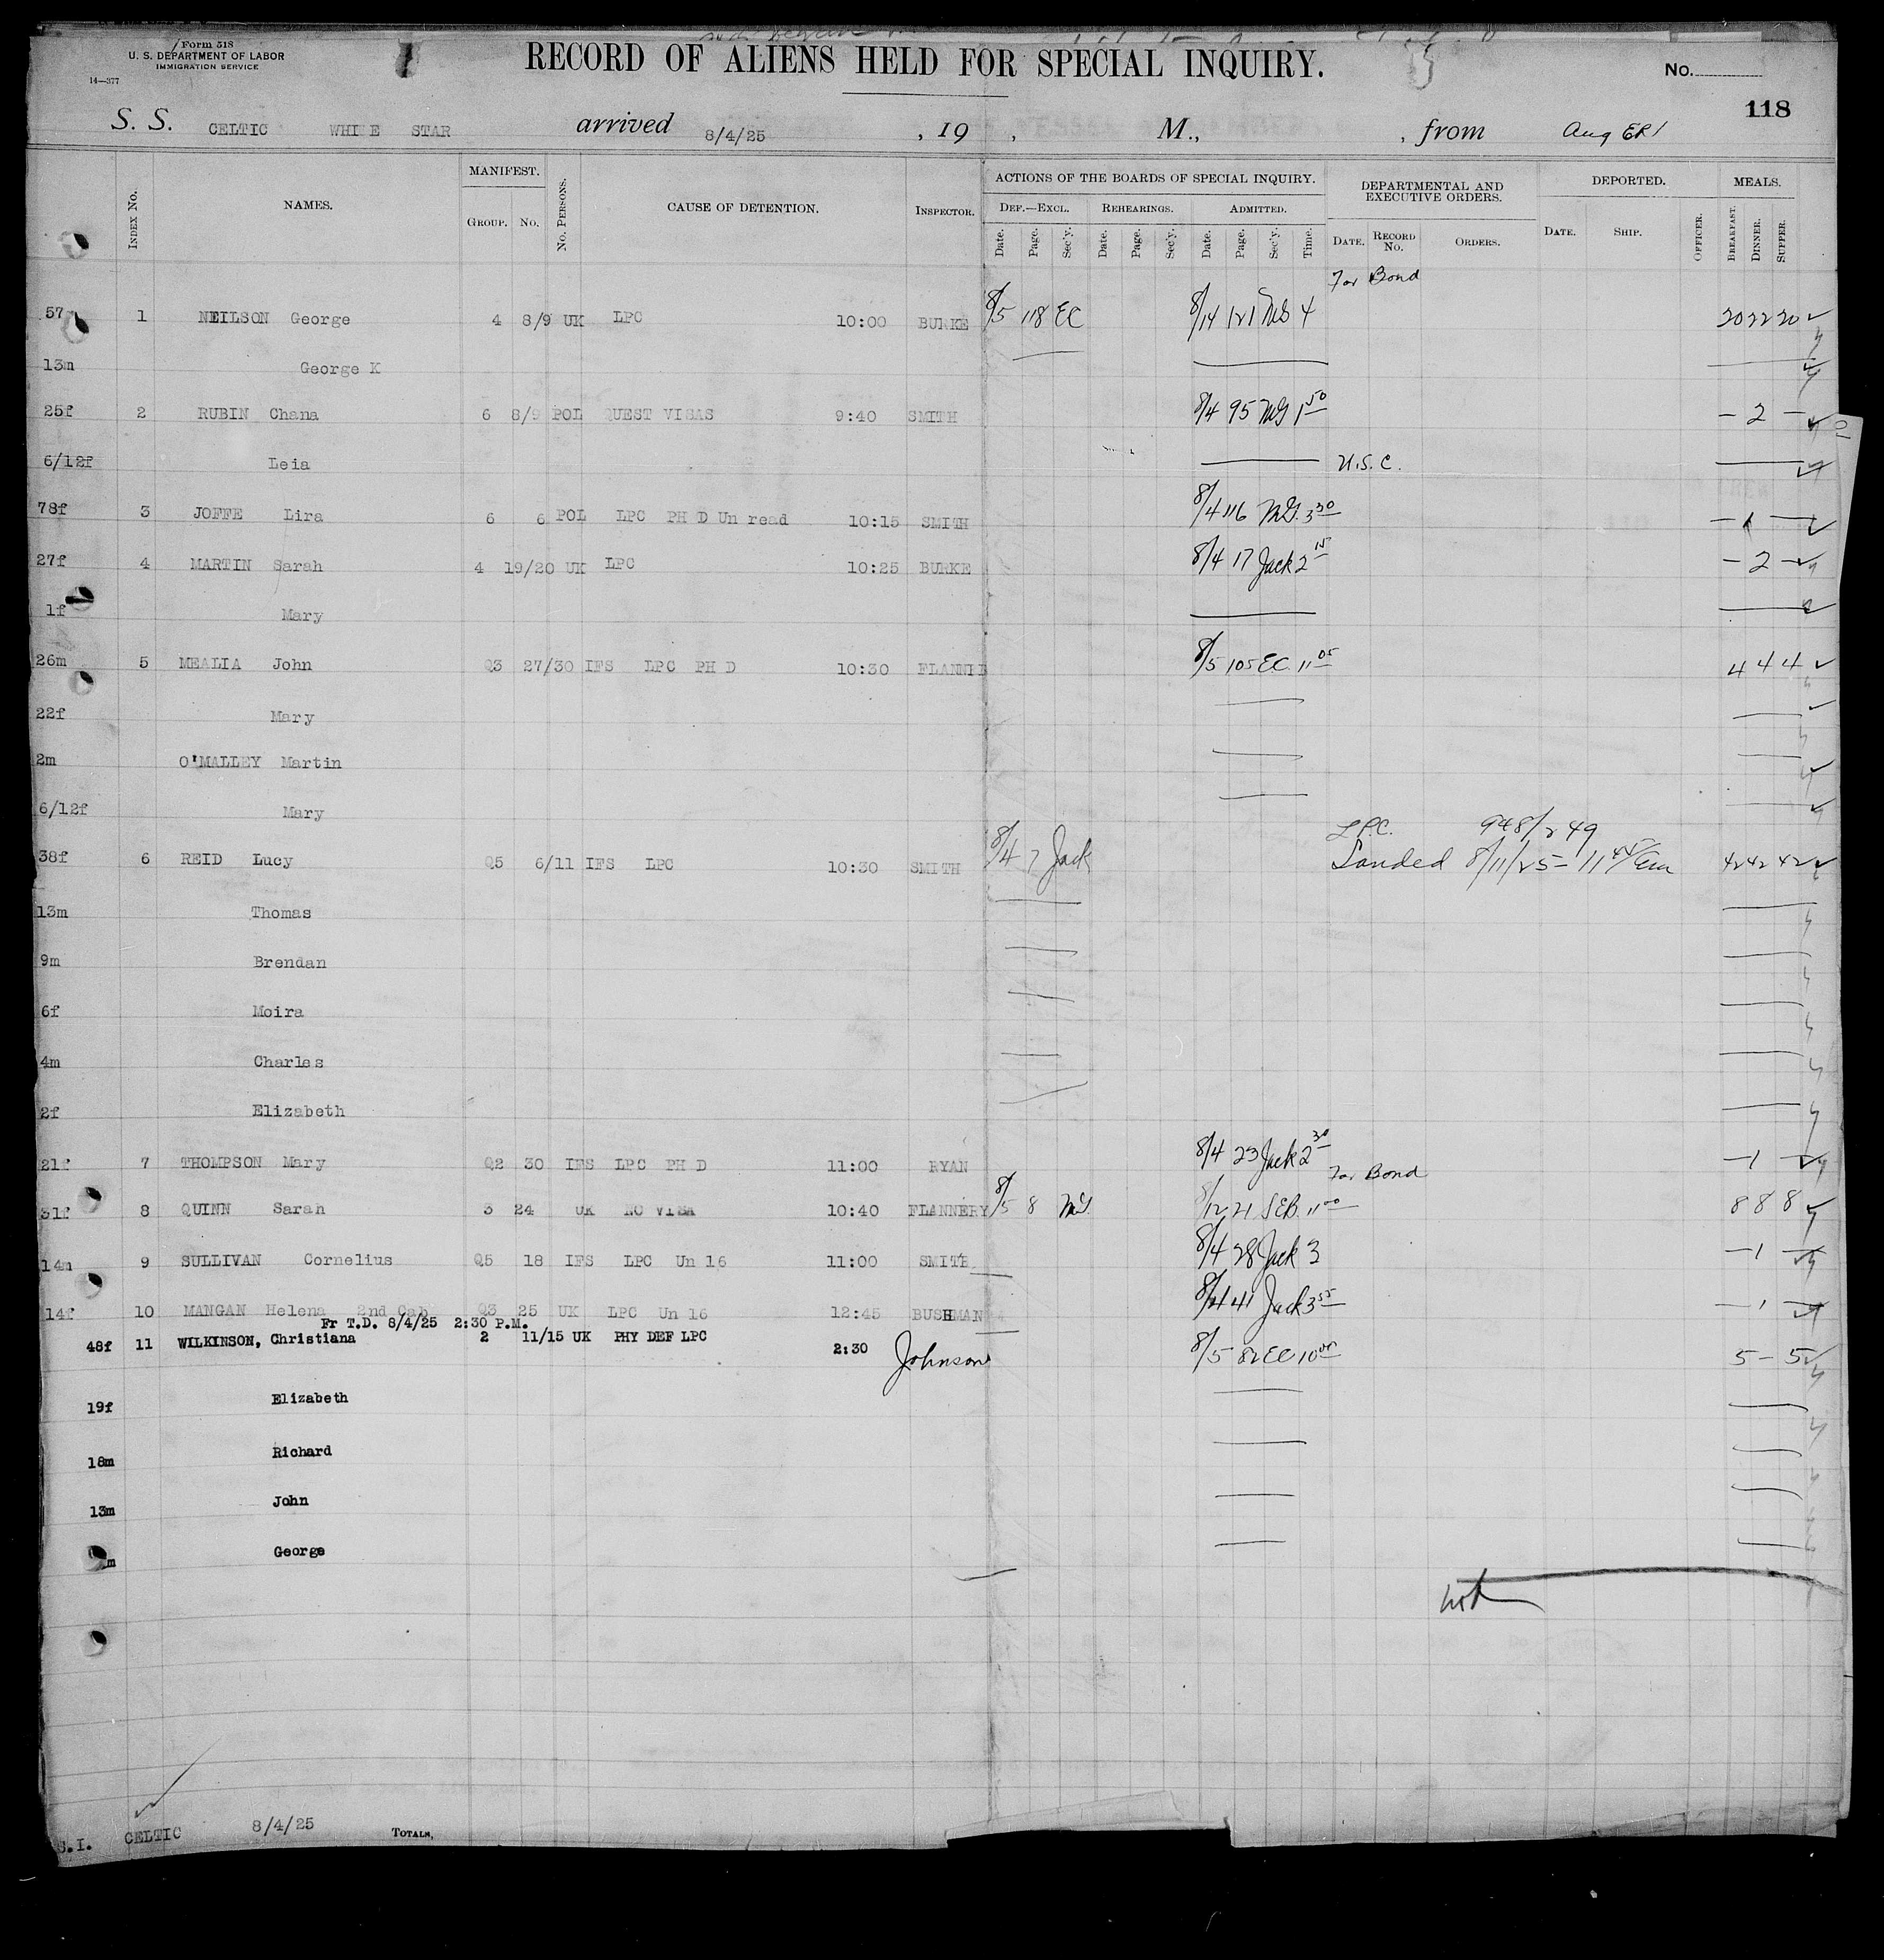 Form 518
U. S. DEPARTMENT OF LABOR
IMMIGRATION SERVICE
14—377
RECORD OF ALIENS HELD FOR SPECIAL INQUIRY.
No.
118
S. S. CELTIC WHI E STAR arrived 8/4/25 , 19 , M., , from Aug ER1
Index No. NAMES. MANIFEST. Group. No. No. Persons. CAUSE OF DETENTION. Inspector. ACTIONS OF THE BOARDS OF SPECIAL INQUIRY. DEF.—EXCL. Date. Page. Sec'y. REHEARINGS. Date. Page. Sec'y. ADMITTED. Date. Page. Sec'y. Time. DEPARTMENTAL AND EXECUTIVE ORDERS. DATE. RECORD No. ORDERS. DEPORTED. DATE. SHIP. OFFICER. MEALS. BREAKFAST. DINNER. SUPPER.
For Bond
57 1 NEILSON George 4 8/9 UK LPC 10:00 BURKE 8/5 118 EC 8/14 121 4 20 22 20
13m George K
25f 2 RUBIN Chana 6 8/9 POL QUEST VISAS 9:40 SMITH 8/4 95 MG 1 50 — 2 —
6/12f Leia U.S.C.
78f 3 JOFFE Lira 6 6 POL LPC PH D Un read 10:15 SMITH 8/4 116 MG. 3 30 — 1 —
27f 4 MARTIN Sarah 4 19/20 UK LPC 10:25 BURKE 8/4 17 Jack 2 15 — 2 —
1f Mary
26m 5 MEALIA John Q3 27/30 IFS LPC PH D 10:30 FLANNE 8/5 105 E.C. 11 05 4 4 4
22f Mary
2m O'MALLEY Martin
6/12f Mary
L.P.C. 948/249
38f 6 REID Lucy Q5 6/11 IFS LPC 10:30 SMITH 8/4 7 Jack Landed 8/11/25 — 11 42 42 42
13m Thomas
9m Brendan
6f Moira
4m Charles
2f Elizabeth
21f 7 THOMPSON Mary Q2 30 IFS LPC PH D 11:00 RYAN 8/4 23 Jack 2 30 — 1 —
For Bond
31f 8 QUINN Sarah 3 24 UK NO VISA 10:40 FLANNERY 8/5 8 MG. 8/12 21 SEB. 11 00 8 8 8
14m 9 SULLIVAN Cornelius Q5 18 IFS LPC Un 16 11:00 SMITH 8/4 28 Jack 3 — 1 —
14f 10 MANGAN Helena 2nd Cab Q3 25 UK LPC Un 16 12:45 BUSHMAN 8/4 41 Jack 3 55 — 1 —
Fr T.D. 8/4/25 2:30 P.M.
48f 11 WILKINSON, Christiana 2 11/15 UK PHY DEF LPC 2:30 Johnson 8/5 82 EC 10 00 5 — 5
19f Elizabeth
18m Richard
13m John
m George
S.I. CELTIC 8/4/25 Totals,